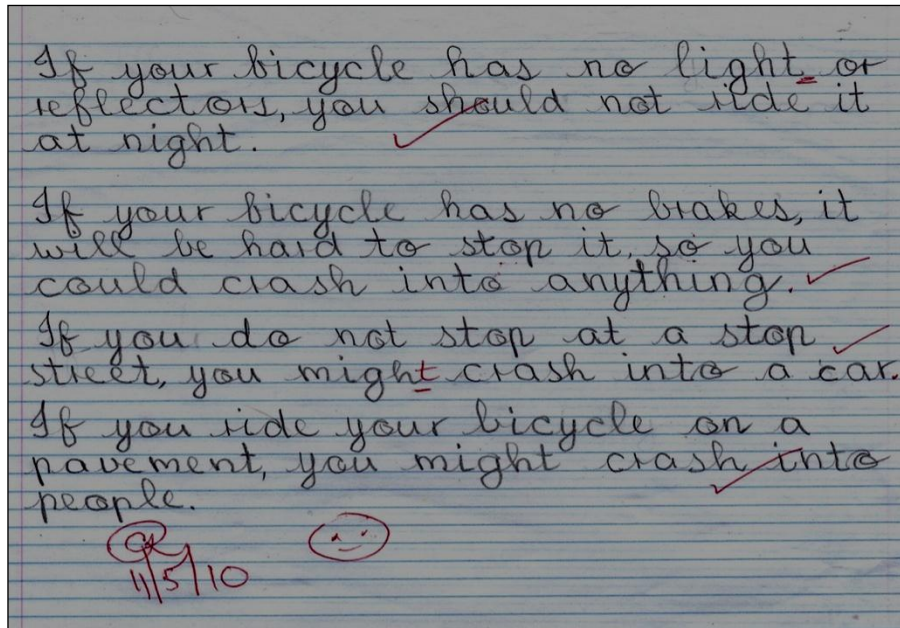 If your bicycle has no light or
reflectors, you should not ride it
at night.
If your bicycle has no brakes, it
will be hard to stop it, so you
could crash into anything.
If you do not stop at a stop
street, you might crash into a car.
If you ride your bicycle on a
pavement, you might crash into
people.
11/5/10